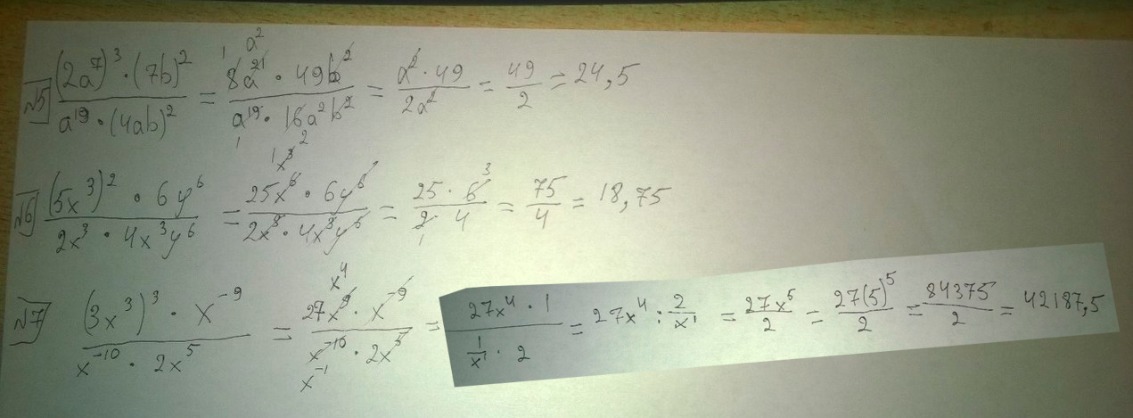 №5 (2a⁷)³·(7b)² / a¹⁹·(4ab)² = 8a²¹·49b² / a¹⁹·16a²b² = a²·49 / 2a² = 49/2 = 24,5
№6 (5x³)²·6y⁶ / 2x³·4x³y⁶ = 25x⁶·6y⁶ / 2x³·4x³y⁶ = 25·6 / 2·4 = 75/4 = 18,75
№7 (3x³)³·x⁻⁹ / x⁻¹⁰·2x⁵ = 27x⁹·x⁻⁹ / x⁻¹⁰·2x⁵ = 27x⁴·1 / (1/x¹)·2 = 27x⁴ : 2/x¹ = 27x⁵/2 = 27(5)⁵/2 = 84375/2 = 42187,5